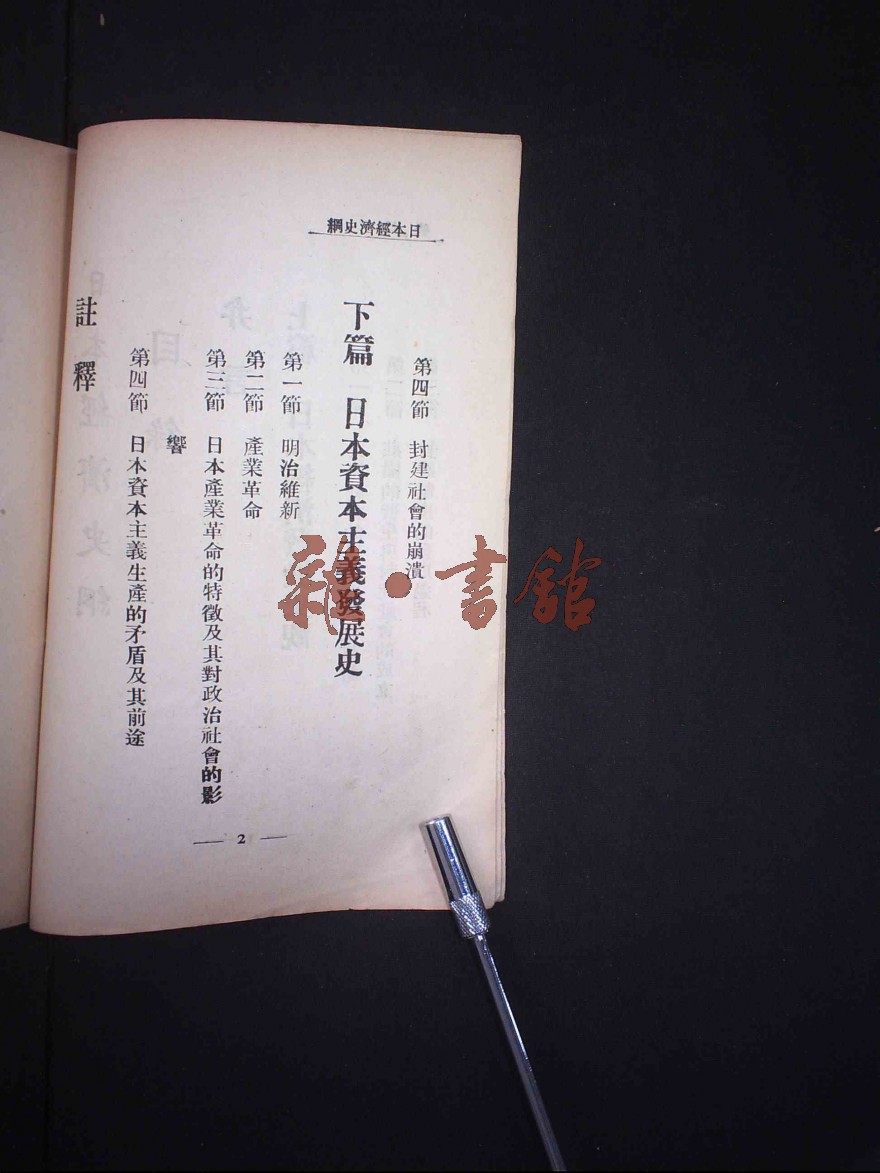 日本經濟史綱
第四節 封建社會的崩潰
下篇 日本資本主義發展史
第一節 明治維新
第二節 產業革命
第三節 日本產業革命的特徵及其對政治社會的影
響
第四節 日本資本主義生產的矛盾及其前途
註釋
— 2 —
雜·書館